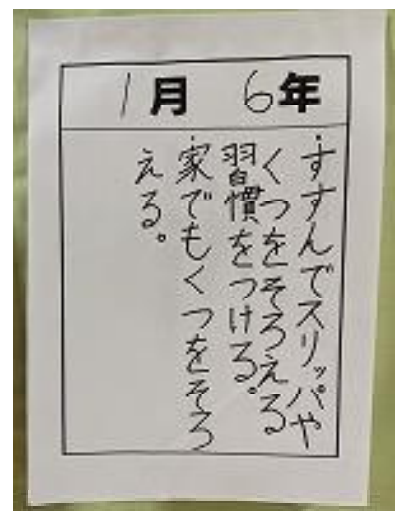 1月 6年
・すすんでスリッパや
くつをそろえる
習慣をつける。
・家でもくつをそろ
える。